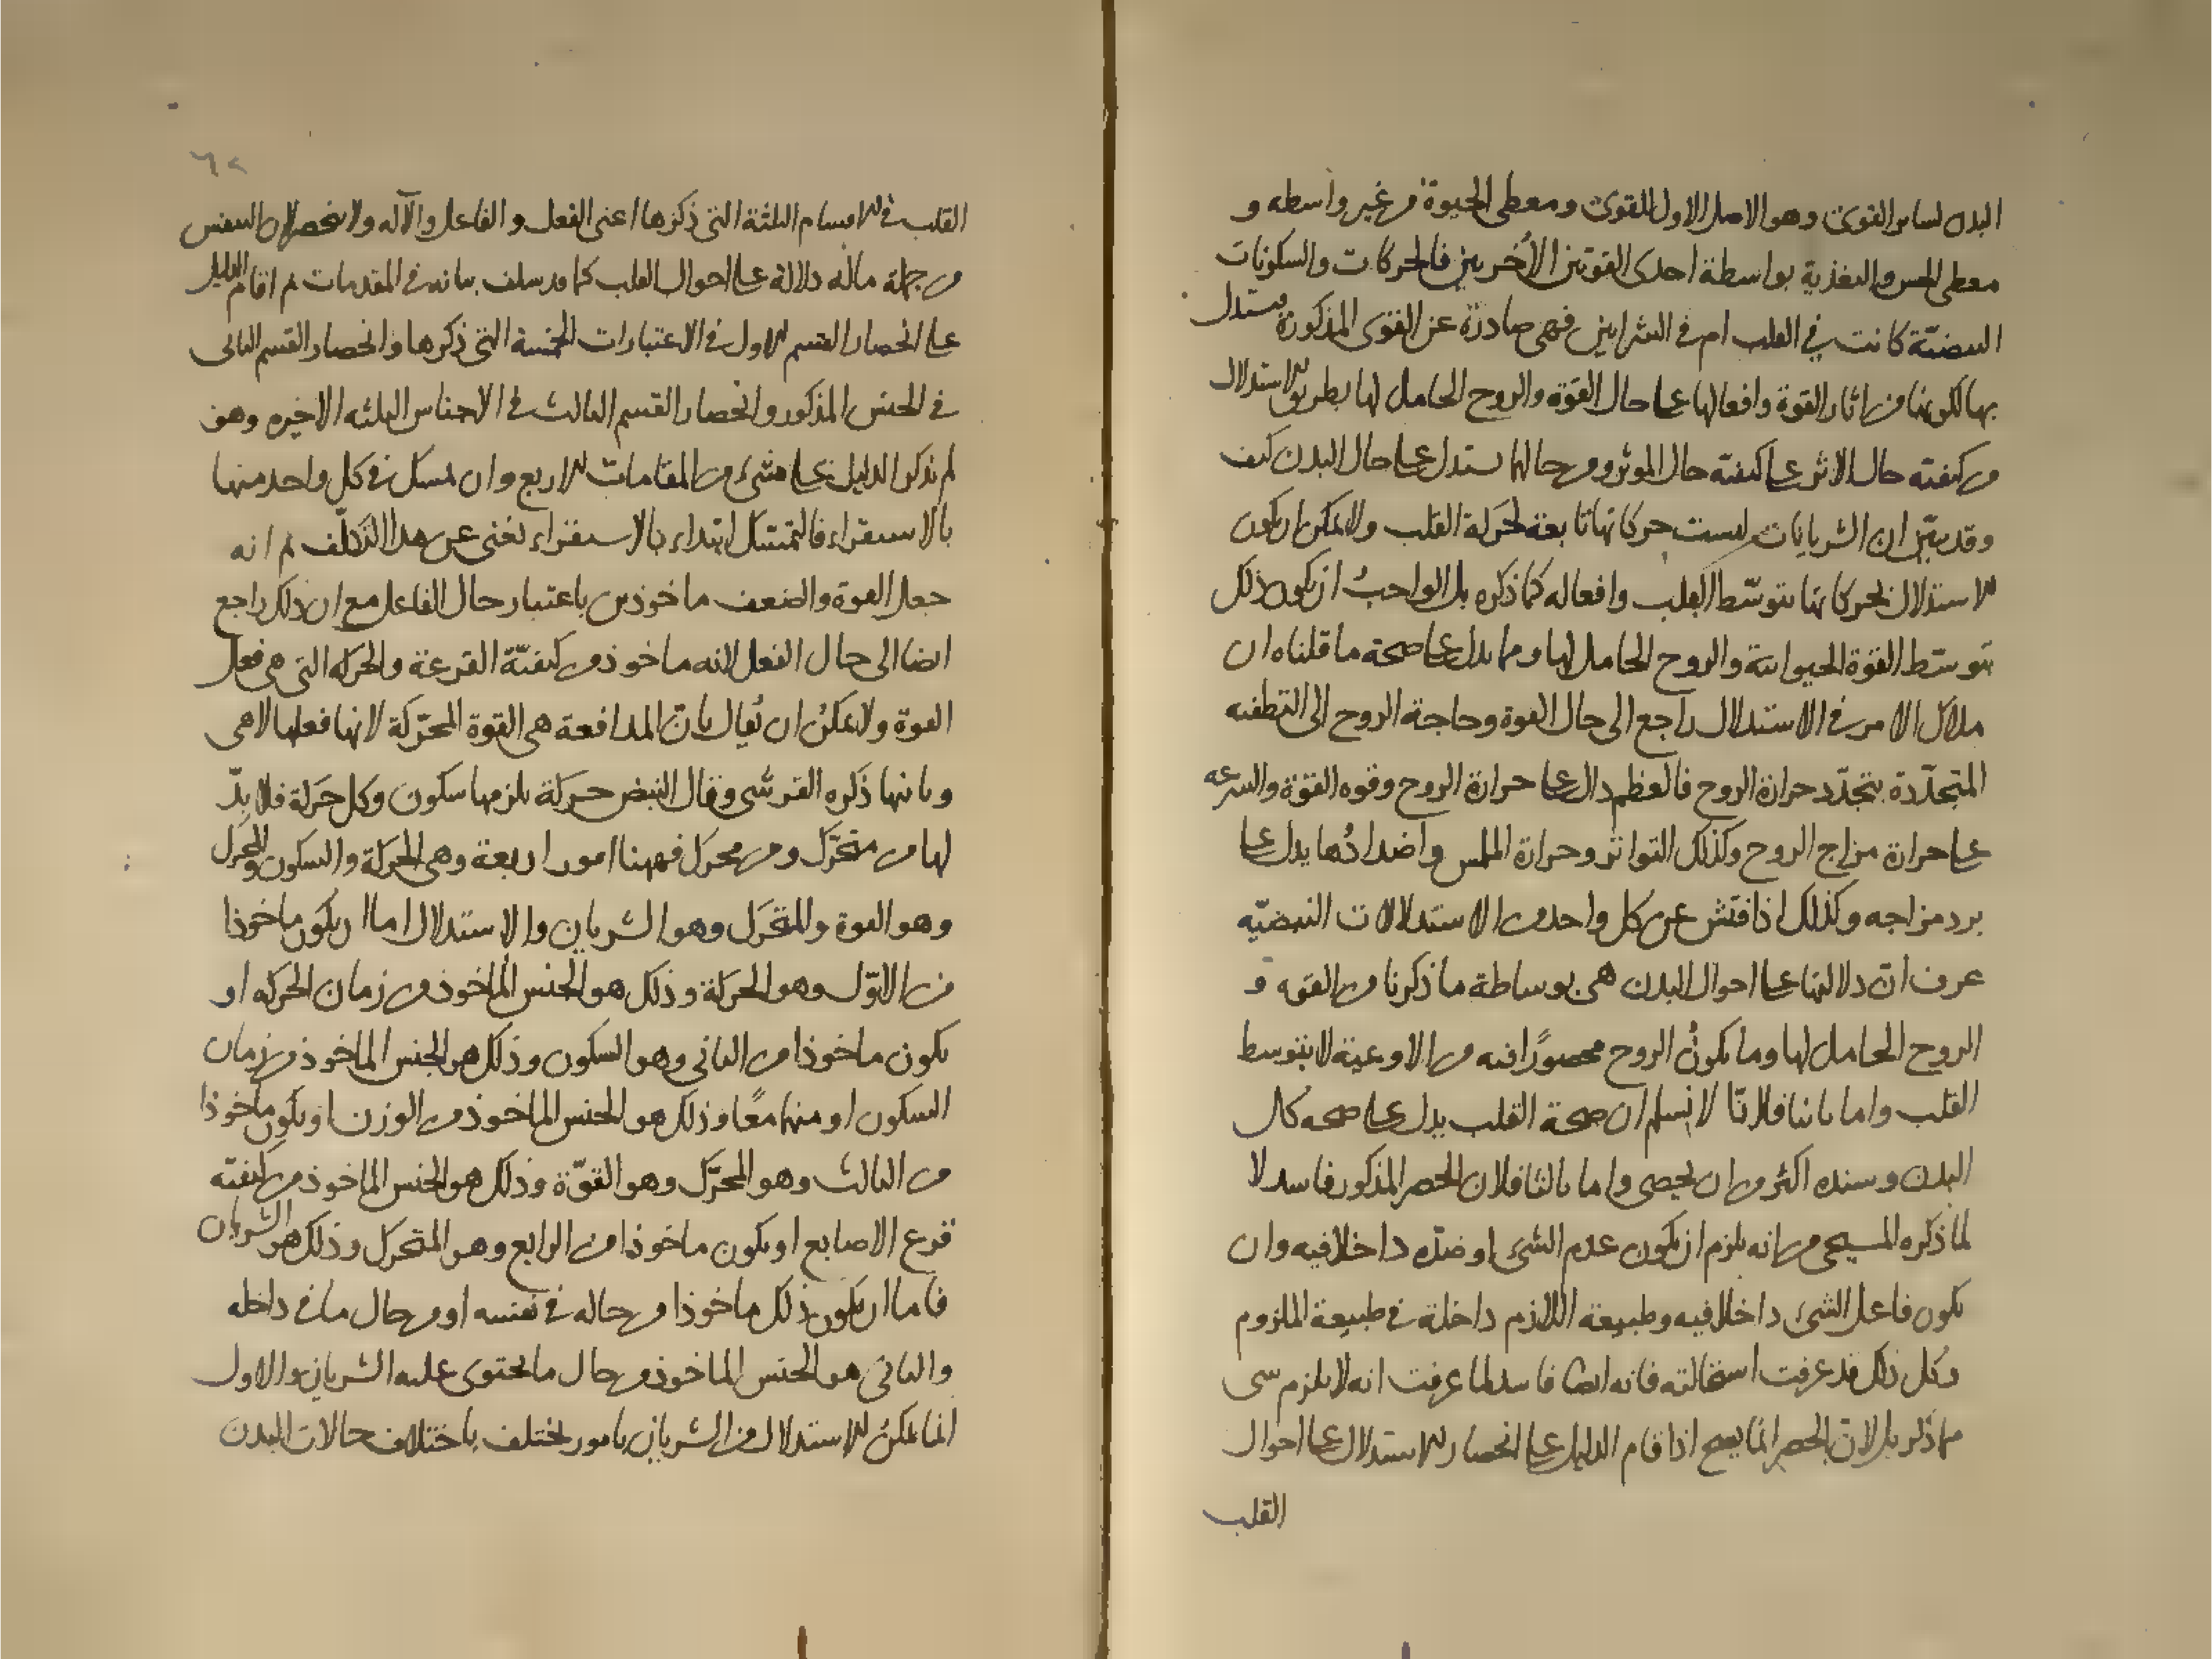 البدن لساير القوى وهو الاصل الاول للقوى ومعطى الحيوة من غير واسطه و
معطى الحس والتغذية بواسطة احدى القوتين الأخريين فالحركات والسكونات
النبضيّة كانت في القلب ام في الشرايين فهى صادرة عن القوى المذكورة فيستدل
بها لكونها من اثار القوة وافعالها على حال القوة والروح الحامل لها بطريق الاستدلال
من كيفيته حال الاثر على كيفيته حال الموثر ومن حالهما يستدل على حال البدن كيف
وقد بيّن ان الشريانات ليست حركاتها تابعة لحركة القلب ولا يمكن ان يكون
الاستدلال بحركاتها بتوسّط القلب وافعاله كما ذكره بل الواجب ان يكون ذلك
بتوسّط القوة الحيوانية والروح الحامل لها ومما يدل على صحة ما قلناه ان
ملاك الامر في الاستدلال راجع الى حال القوة وحاجة الروح الى التطفيه
المتجدّدة بتجدّد حرارة الروح فالعظم دال على حرارة الروح وقوه القوة والسرعه
على حرارة مزاج الروح وكذلك التواتر وحرارة الملمس واضدادُها يدل على
برد مزاجه وكذلك اذا فتش عن كل واحد من الاستدلالات النبضيّه
عرف انّ دلالتها على احوال البدن هى بوساطة ما ذكرنا من القوه و
الروح الحامل لها وما يكونُ الروح محصورًا فيه من الاوعية لا بتوسط
القلب واما ثانيا فلانّا لا نسلم ان صحة القلب يدل على صحه كل
البدن وسنده اكثر من ان يحصى واما ثالثا فلان الحصر المذكور فاسد لا
لما ذكره المسيحى من انه يلزم ان يكون عدم الشىء او ضدّه داخلا فيه وان
يكون فاعل الشىء داخلا فيه وطبيعة اللازم داخلة في طبيعة الملزوم
وكل ذلك قد عرفت استحالته فانه ايضا فاسد لما عرفت انه لا يلزم شى
مما ذكر بل لانّ الحصر انما يصح اذا قام الدليل على انحصار الاستدلال على احوال
القلب
٦٢
القلب في الاقسام الثلثة التى ذكرها اعنى الفعل والفاعل والآله ولا ينحصر لان النفس
من جملة ما له دلالة على احوال القلب كما قد سلف بيانه في المقدمات ثم اقام الدليل
على انحصار القسم الاول في الاعتبارات الخمسة التى ذكرها وانحصار القسم الثانى
في الجنس المذكور وانحصار القسم الثالث في الاجناس الثلثه الاخيره وهو
لم يذكر الدليل على شىء من المقامات الاربع وان تمسك في كل واحد منها
بالاستقراء فالتمسّك ابتداء بالاستقراء يغنى عن هذا التكلّف ثم انه
جعل القوة والضعف ماخوذين باعتبار حال الفاعل مع ان ذلك راجع
ايضا الى حال الفعل لانه ماخوذ من كيفيّة القرعة والحركه التى هى فعل
القوة ولا يمكنُ ان يُقال بانّ المدافعة هى القوة المحرّكة لانها فعلها لا هى
وثانيها ذكره القرشى وقال النبض حركة يلزمها سكون وكل حركة فلا بدّ
لها من متحرّك ومن محرك فههنا امور اربعة وهى الحركة والسكون والمحرك
وهو القوة والمتحرك وهو الشريان والاستدلال اما ان يكون ماخوذا
من الاوّل وهو الحركة وذلك هو الجنس الماخوذ من زمان الحركه او
يكون ماخوذا من الثانى وهو السكون وذلك هو الجنس الماخوذ من زمان
السكون او منهما معًا وذلك هو الجنس الماخوذ من الوزن او يكون ماخوذا
من الثالث وهو المحرّك وهو القوّة وذلك هو الجنس الماخوذ من كيفيّة
قرع الاصابع او يكون ماخوذا من الرابع وهو المتحرك وذلك هو الشريان
فاما ان يكون ذلك ماخوذا من حاله في نفسه او من حال ما في داخله
والثانى هو الجنس الماخوذ من حال ما يحتوى عليه الشريان والاول
انما يمكنُ الاستدلال من الشريان بامور يختلف باختلاف حالات البدن